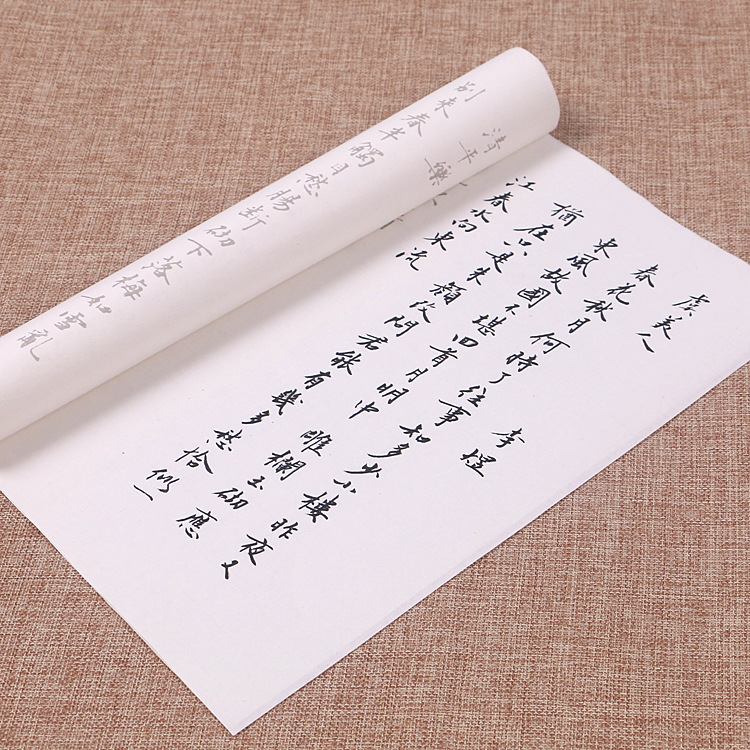 虞美人 李煜
春花秋月何時了往事知多少小樓昨夜又
東風故國不堪回首月明中雕欄玉砌應
猶在只是朱顏改問君能有幾多愁恰似一
江春水向東流
清平樂
別來春半觸目愁腸斷砌下落梅如雪亂